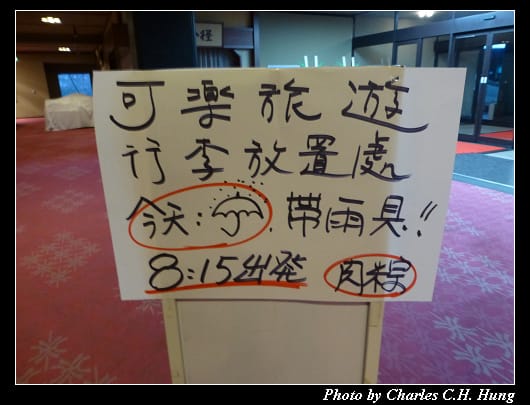 小径
可楽旅遊
行李放置處
今天: . 帶雨具!!
8:15出発 肉粽
Photo by Charles C.H. Hung